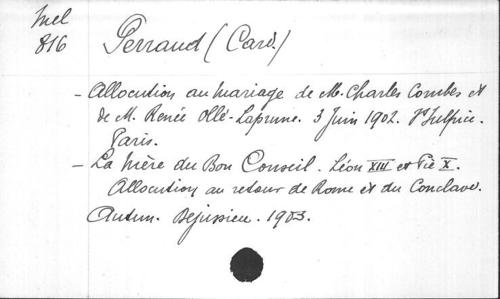 Mel
816
Perraud (Card.)
- Allocution au mariage de M. Charles Combes et
de M. Renée Ollé-Laprune. 3 Juin 1902. St Sulpice.
Paris.
- La Mère du Bon Conseil. Léon XIII et Pie X.
Allocution au retour de Rome et du Conclave.
Autun. Dejussieu. 1903.